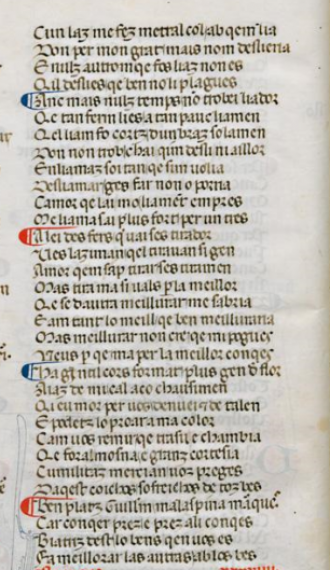 Cun laz me fez metral col ab qem lia
Don per mon grat mais nom desliería
E nulz autrom qe fos laz non es
Qil deslies qe ben noli plagues
Anc mais nulz temps no trobei liador
Qe tan ferm lies a tan pauc liamen
Qel liam fo cortz dun braz solamen
Don non trob chai qim desli ni aillor
Enliamaz soi tan qe sim uolia
Desliamar ges far non o poria
Camor qe lai mo liamet em pres
Me liama sai plus fort per un tres
A lei des fers qai ses tirador
Ues laziman qel tirauan si gen
Amor qem sap tirar ses tiramen
Mas tira ma si uals p la meillor
Qe se dautra meillurar me sabria
E am tant lo meill qe ben meilluraria
Mas meillurar non cre qe mi pogues
Neus p qe ma per la meillor conqes
Ha gentil cors format plus gen de flor
Aiaz de mi cal aco chausimen
Qi eu mor per uos denueia e de talen
E podetz lo proar a ma color
Cam uos remir qe trasue chambia
Qe foral mosna e granz cortesia
Cumilitaz merceian uor preges
Daqest coichos sofreichos de toz bes
Ben platz Guillm malaspina marqes
Car conqer prez e prez a li conqes
Biatriz dest lo bens qen uos es
Fa meillorar las autras ab los bes